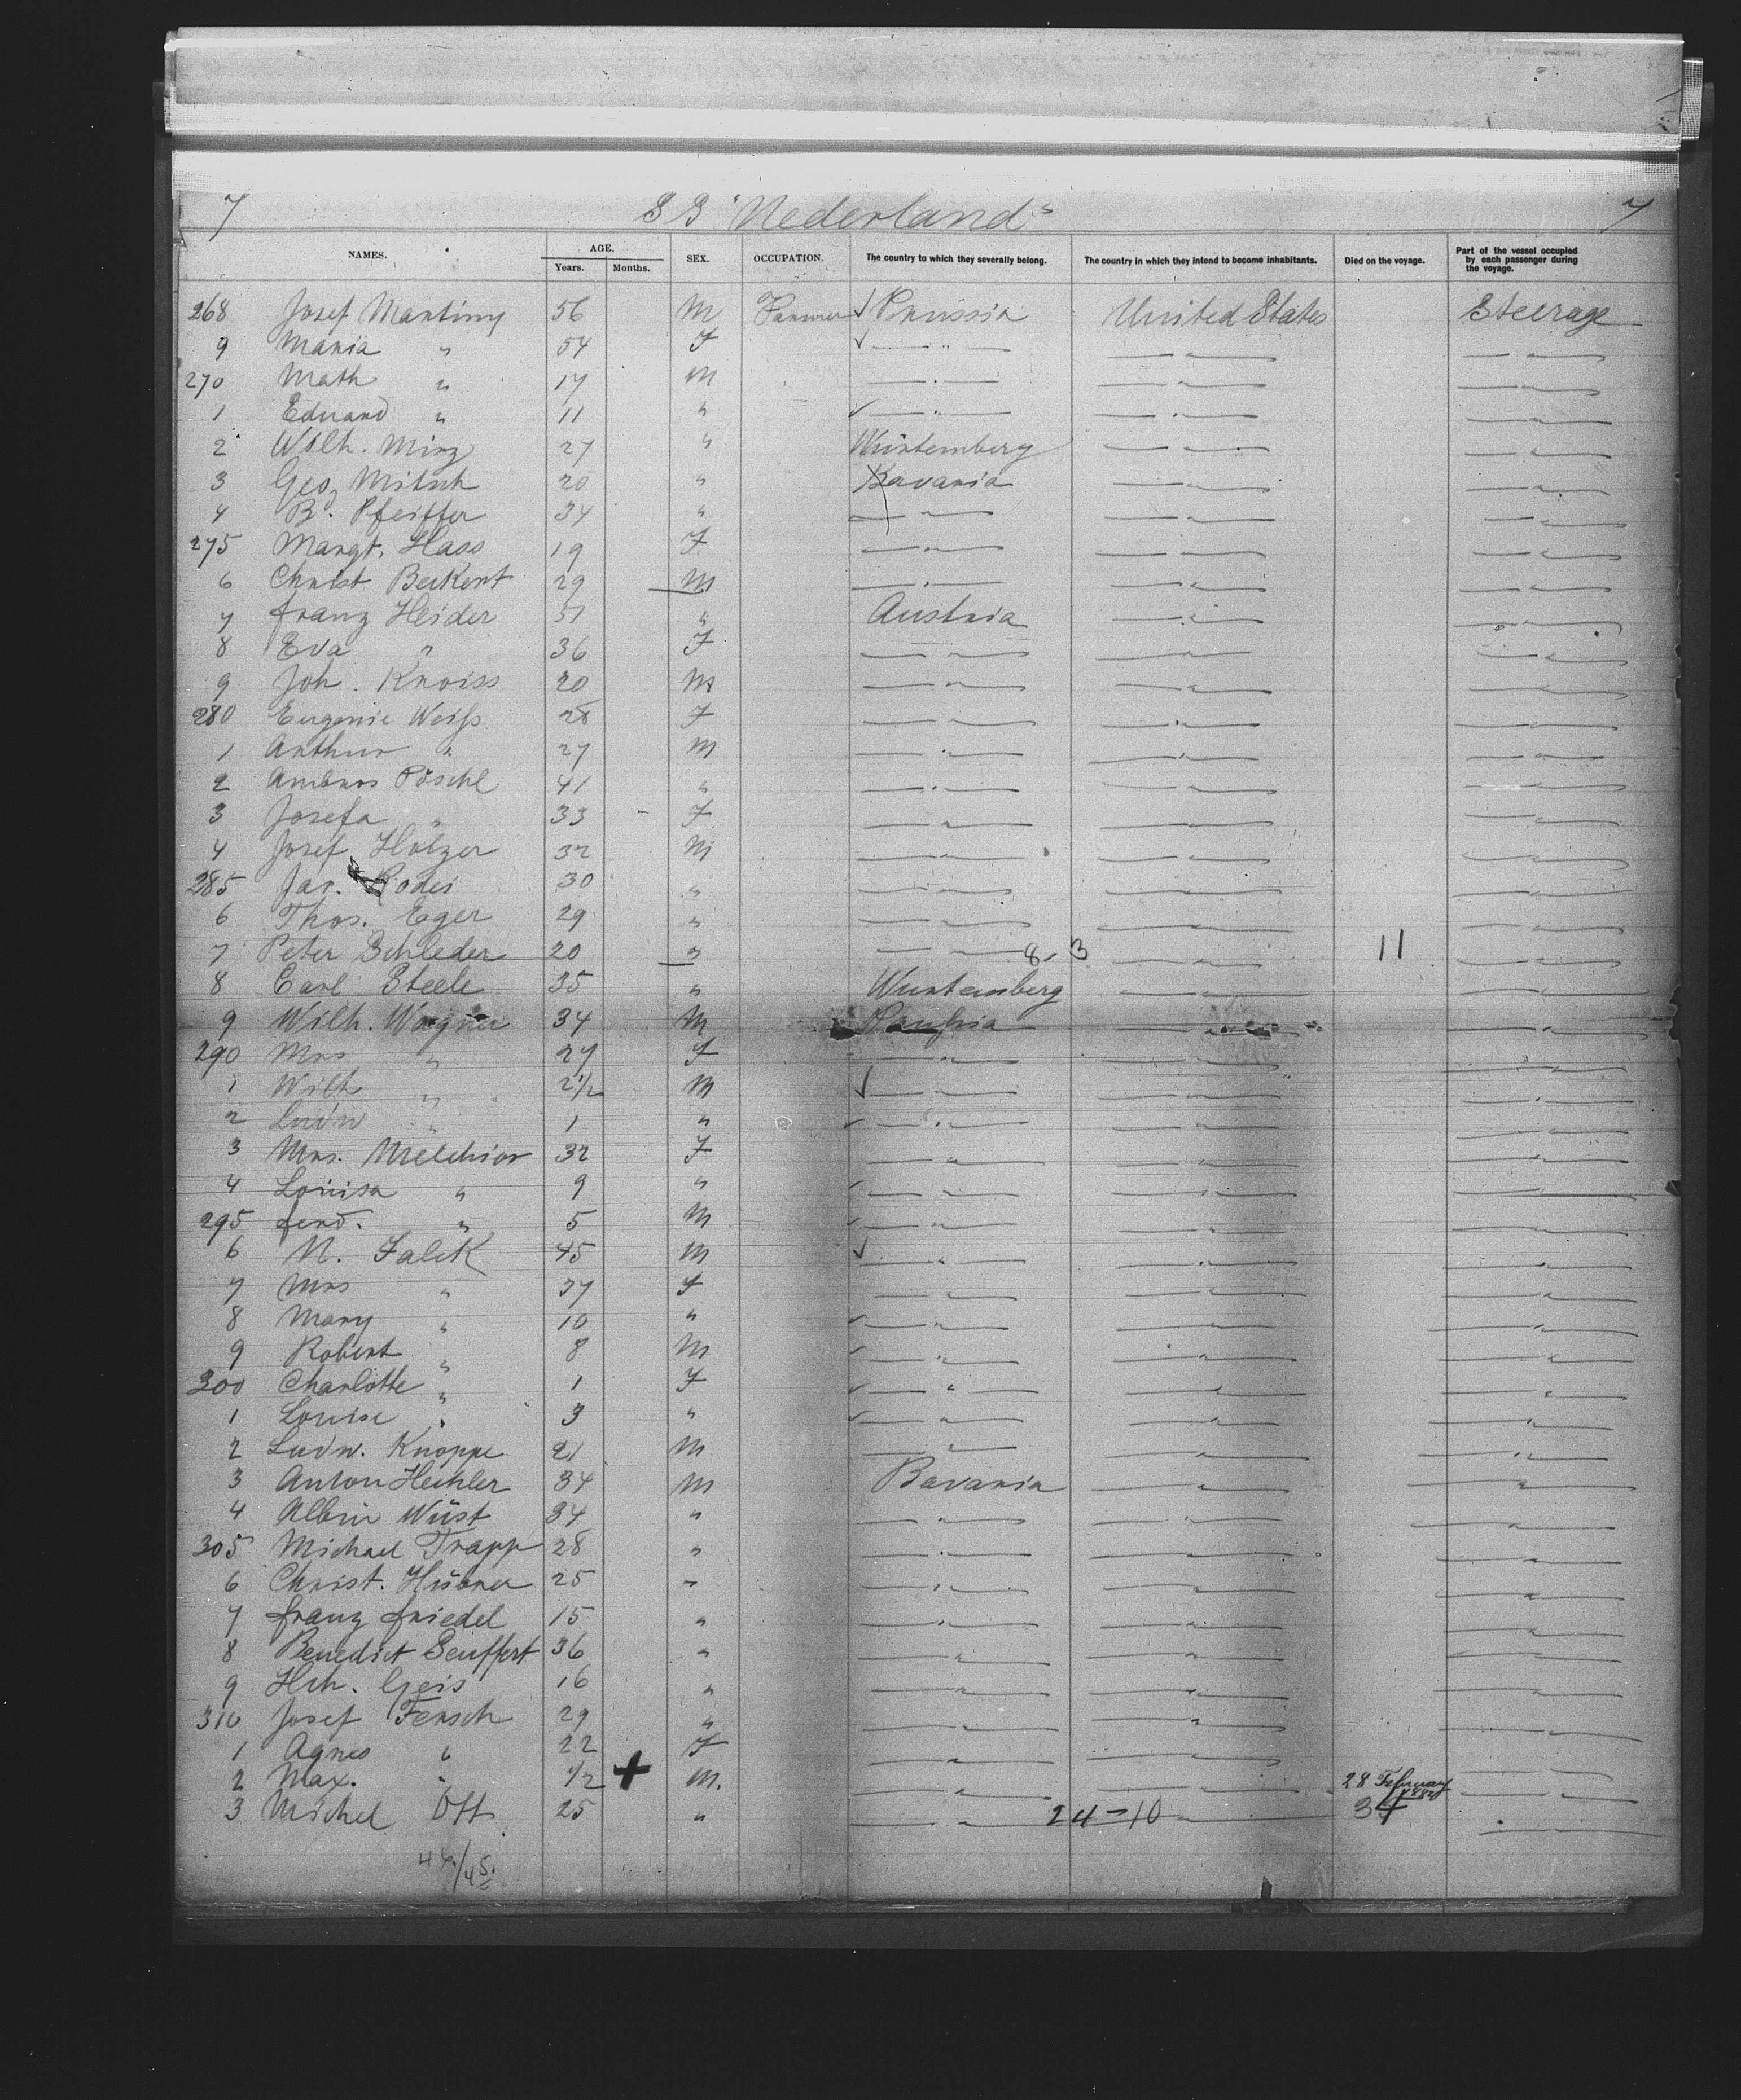 7 S S "Nederland" 7
NAMES. AGE. Years. Months. SEX. OCCUPATION. The country to which they severally belong. The country in which they intend to become inhabitants. Died on the voyage. Part of the vessel occupied by each passenger during the voyage.
268 Josef Martiny 56 M Farmer Prussia United States Steerage
9 Maria " 54 F " " "
270 Math " 17 M " " "
1 Eduard " 11 " " " "
2 Wilh. Minz 27 " Würtemberg " "
3 Geo Mitsch 20 " Bavaria " "
4 B. Pfeiffer 34 " " " "
275 Margt. Hass 19 F " " "
6 Christ Beikert 29 M " " "
7 Franz Heider 51 " Austria " "
8 Eva " 36 F " " "
9 Joh. Knoiss 20 M " " "
280 Eugenie Weiss 28 F " " "
1 Arthur " 27 M " " "
2 Ambros Pöschl 41 " " " "
3 Josefa " 33 F " " "
4 Josef Holzer 32 M " " "
285 Jar. Rodei 30 " " " "
6 Thos. Eger 29 " " " "
7 Peter Schleder 20 " " 8-3 " 11 "
8 Carl Steele 35 " Wurtemberg " "
9 Wilh. Wagner 34 M " "
290 Mrs " 27 F " " "
1 Wilh " 2 1/2 M " " "
2 Ludw " 1 " " " "
3 Mrs. Melchior 32 F " " "
4 Louisa " 9 " " " "
295 Ferd. " 5 M " " "
6 N. Falck 45 M " " "
7 Mrs " 37 F " " "
8 Mary " 10 " " " "
9 Robert " 8 M " " "
300 Charlotte " 1 F " " "
1 Louise " 3 " " " "
2 Ludw. Knoppe 21 M " " "
3 Anton Hechler 34 M Bavaria " "
4 Albin Wüst 34 " " " "
305 Michael Trapp 28 " " " "
6 Christ. Hübner 25 " " " "
7 Franz Friedel 15 " " " "
8 Benedict Seuffert 36 " " " "
9 Hch. Geis 16 " " " "
310 Josef Fersch 29 " " " "
1 Agnes " 22 F " " "
2 Max. " 1/2 + M. " " 28 February "
3 Michel Ott 25 " " 24-10 " 34 "
44/45